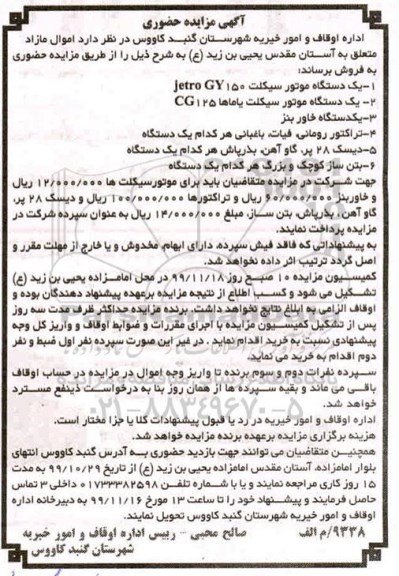 آگهی مزایده حضوری
اداره اوقاف و امور خیریه شهرستان گنبد کاووس در نظر دارد اموال مازاد
متعلق به آستان مقدس یحیی بن زید (ع) به شرح ذیل را از طریق مزایده حضوری
به فروش برساند:
۱-یک دستگاه موتور سیکلت jetro GY۱۵۰
۲- یک دستگاه موتور سیکلت یاماها CG۱۲۵
۳-یکدستگاه خاور بنز
۴-تراکتور رومانی، فیات، باغبانی هر کدام یک دستگاه
۵-دیسک ۲۸ پر، گاو آهن، بذرپاش هر کدام یک دستگاه
۶-بتن ساز کوچک و بزرگ هر کدام یک دستگاه
جهت شرکت در مزایده متقاضیان باید برای موتورسیکلت ها ۱۲/۰۰۰/۰۰۰ ریال
و خاوربنز ۶۰/۰۰۰/۰۰۰ ریال و تراکتورها ۱۰۰/۰۰۰/۰۰۰ ریال و دیسک ۲۸ پر،
گاو آهن، بذرپاش، بتن ساز، مبلغ ۱۴/۰۰۰/۰۰۰ ریال به عنوان سپرده شرکت در
مزایده پرداخت نمایند.
به پیشنهاداتی که فاقد فیش سپرده، دارای ابهام، مخدوش و یا خارج از مهلت مقرر و
اصل گردد ترتیب اثر داده نخواهد شد.
کمیسیون مزایده ۱۰ صبح روز ۹۹/۱۱/۱۸ در محل امامزاده یحیی بن زید (ع)
تشکیل می شود و کسب اطلاع از نتیجه مزایده برعهده پیشنهاد دهندگان بوده و
اوقاف الزامی به ابلاغ نتایج نخواهد داشت. برنده مزایده حداکثر ظرف مدت سه روز
پس از تشکیل کمیسیون مزایده با اجرای مقررات و ضوابط اوقاف و واریز کل وجه
پیشنهادی نسبت به خرید اقدام نماید . در غیر این صورت سپرده نفر اول ضبط و نفر
دوم اقدام به خرید می نماید.
سپرده نفرات دوم و سوم برنده تا واریز وجه اموال در مزایده در حساب اوقاف
باقی می ماند و بقیه سپرده ها از همان روز بنا به درخواست ذینفع مسترد
خواهد شد.
اداره اوقاف و امور خیریه در رد یا قبول پیشنهادات کلا یا جزا مختار است.
هزینه برگزاری مزایده برعهده برنده مزایده خواهد شد.
همچنین متقاضیان می توانند جهت بازدید حضوری به آدرس گنبد کاووس انتهای
بلوار امامزاده، آستان مقدس امامزاده یحیی بن زید (ع) از تاریخ ۹۹/۱۰/۲۹ به مدت
۱۵ روز کاری مراجعه نمایند و یا با شماره تلفن ۰۱۷۳۳۳۸۲۵۹۸ داخلی ۳ تماس
حاصل فرمایند و پیشنهاد خود را تا ساعت ۱۳ مورخ ۹۹/۱۱/۱۶ به دبیرخانه اداره
اوقاف و امور خیریه شهرستان گنبد کاووس تحویل نمایند.
۹۳۳۸/م الف صالح محبی - رییس اداره اوقاف و امور خیریه
شهرستان گنبد کاووس
۰۲۱-۸۸۳۴۹۶۷۰-۵